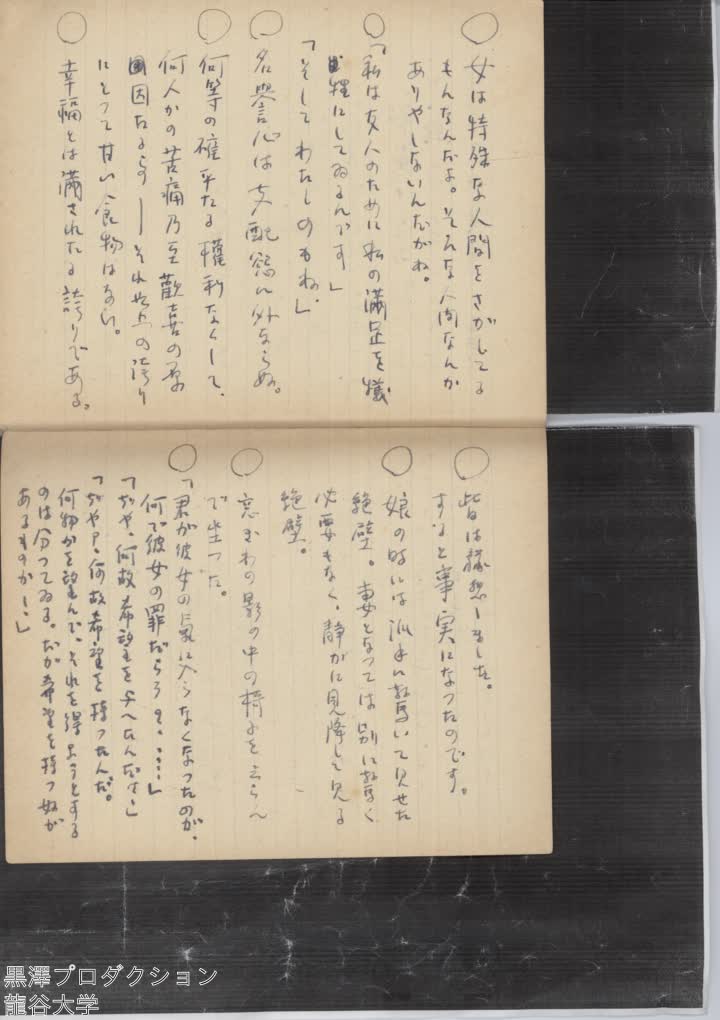 ○ 女は特殊な人間をさがしてる
もんなんだよ。そんな人間なんか
ありやしないんだがね。
○ 「私は友人のために私の満足を犠
牲にしてゐるんです」
「そしてわたしのもね」
○ 名誉心は支配慾に外ならぬ。
○ 何等の確乎たる權利なくして、
何人かの苦痛乃至歡喜の原
因たる事 ― それ以上の誇り
にとつて甘い食物はない。
○ 幸福とは満されたる誇りである。
○ 皆は豫想しました。
すると事実になつたのです。
○ 娘の時には派手に驚いて見せた
絶壁。妻となつては別に驚く
必要もなく、静かに見降して見る
絶壁。
○ 窓ぎわの影の中の椅子をえらん
で坐つた。
○ 「君が彼女の氣に入らなくなつたのが、
何で彼女の罪だらう？、……」
「ぢや、何故希望を与へたんだ！」
「ぢや？、何故希望を持つたんだ。
何物かを望んで、それを得ようとする
のは分つてゐる。だが希望を持つ奴が
あるものか！」
黒澤プロダクション
龍谷大学